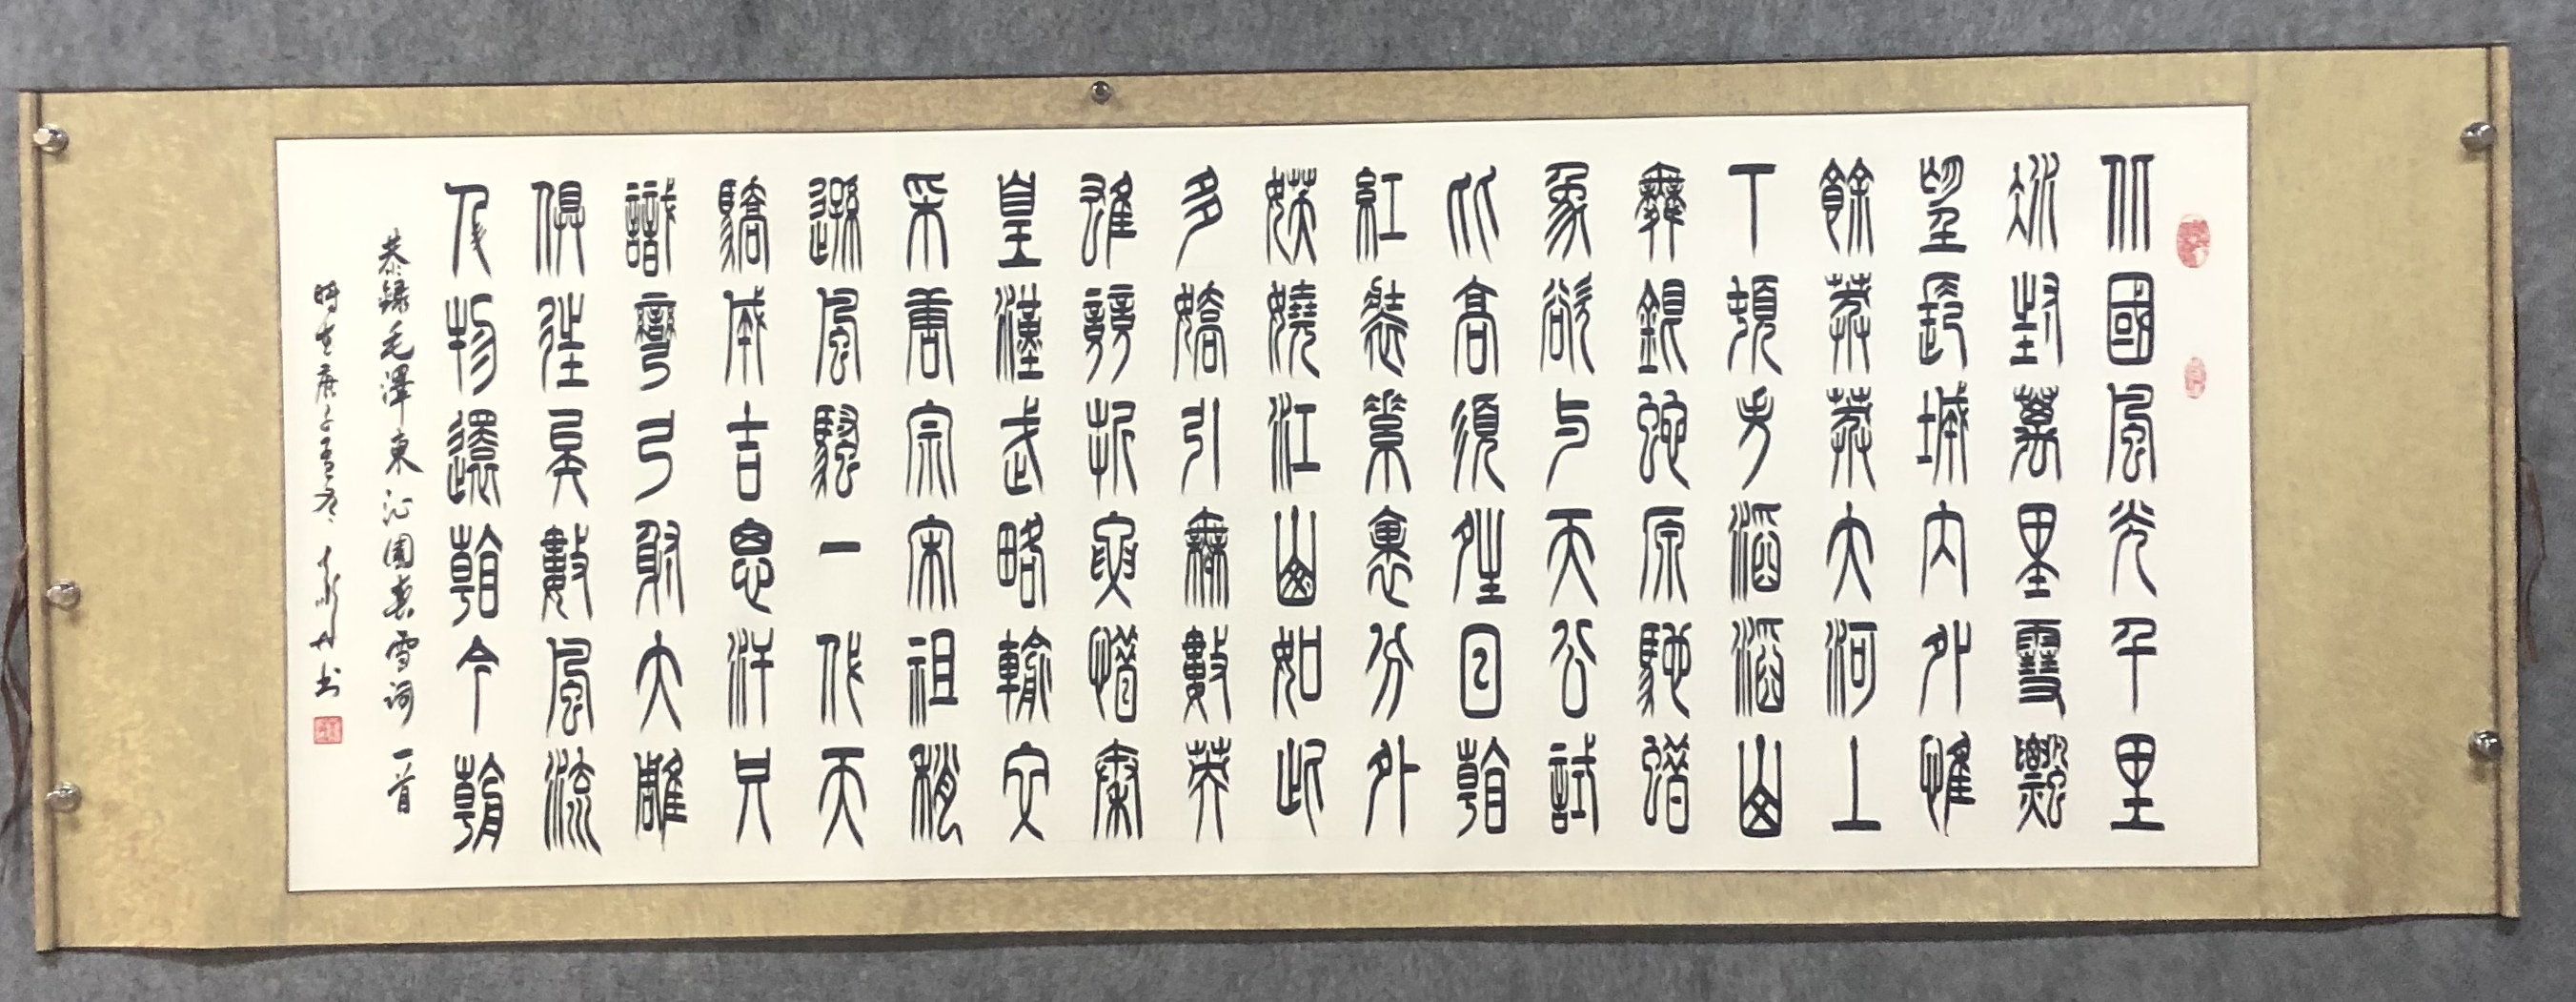 北國風光千里
冰封萬里雪飄
望長城內外惟
餘莽莽大河上
下頓失滔滔山
舞銀蛇原馳蠟
象欲与天公試
比高須夝日看
紅裝素裹分外
妖嬈江山如此
多嬌引無數英
雄競折腰惜秦
皇漢武略輸文
采唐宗宋祖稍
遜風騷一代天
驕成吉思汗只
識彎弓射大雕
俱往矣數風流
人物還看今朝
恭錄毛澤東沁園春雪詞一首
時在庚子 书